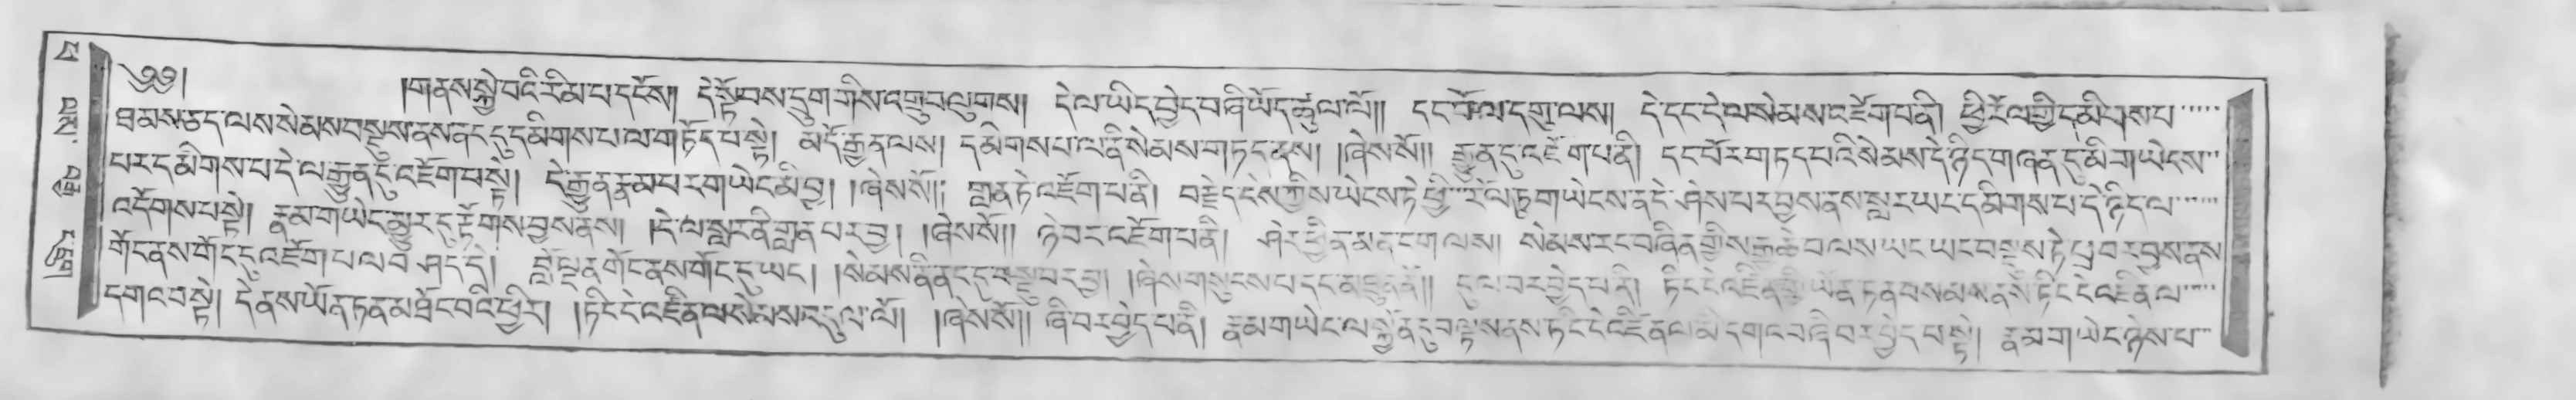 ༄༅། །གནས་སྐྱེ་བའི་རིམ་པ་དངོས། དེ་སྟོབས་དྲུག་གིས་འགྲུབ་ལུགས། དེ་ལ་ཡིད་བྱེད་བཞི་ཡོད་ཚུལ་ལོ།། དང་པོ་ལ་དགུ་ལས། དེ་དང་དེ་ལ་སེམས་འཇོག་པ་ནི། ཕྱི་རོལ་གྱི་དམིགས་པ་
ཐམས་ཅད་ལས་སེམས་བསྡུས་ནས་ནང་དུ་དམིགས་པ་ལ་གཏོད་པ་སྟེ། མདོ་རྒྱན་ལས། དམིགས་པ་ལ་ནི་སེམས་གཏད་ནས། །ཞེས་སོ།། རྒྱུན་དུ་འཇོག་པ་ནི། དང་པོར་གཏད་པའི་སེམས་དེ་ཉིད་གཞན་དུ་མི་གཡེངས་
པར་དམིགས་པ་དེ་ལ་རྒྱུན་དུ་འཇོག་པ་སྟེ། དེ་རྒྱུན་རྣམ་པར་གཡེང་མི་བྱ། །ཞེས་སོ།། གླན་ཏེ་འཇོག་པ་ནི། བརྗེད་ངེས་ཀྱིས་ཡེངས་ཏེ་ཕྱི་རོལ་ཏུ་གཡེངས་ན་དེ་ཤེས་པར་བྱས་ནས་སླར་ཡང་དམིགས་པ་དེ་ཉིད་ལ་
འདོགས་པ་སྟེ། རྣམ་གཡེང་མྱུར་དུ་རྟོགས་བྱས་ནས། །དེ་ལ་སླར་ནི་གླན་པར་བྱ། །ཞེས་སོ།། ཉེ་བར་འཇོག་པ་ནི། ཤེར་ཕྱིན་མན་ངག་ལས། སེམས་རང་བཞིན་གྱིས་རྒྱ་ཆེ་བ་ལས་ཡང་ཡང་བསྡུས་ཏེ་ཕྲ་བར་བྱས་ནས་
གོང་ནས་གོང་དུ་འཇོག་པ་ལ་བཤད་དེ། བློ་ལྡན་གོང་ནས་གོང་དུ་ཡང་། །སེམས་ནི་ནང་དུ་བསྡུ་བར་བྱ། །ཞེས་གསུངས་པ་དང་མཐུན་ནོ།། དུལ་བར་བྱེད་པ་ནི། ཏིང་ངེ་འཛིན་གྱི་ཡོན་ཏན་བསམས་ནས་ཏིང་ངེ་འཛིན་ལ་
དགའ་བ་སྟེ། དེ་ནས་ཡོན་ཏན་མཐོང་བའི་ཕྱིར། །ཏིང་ངེ་འཛིན་ལ་སེམས་འདུལ་ལོ། །ཞེས་སོ།། ཞི་བར་བྱེད་པ་ནི། རྣམ་གཡེང་ལ་སྐྱོན་དུ་བལྟས་ནས་ཏིང་ངེ་འཛིན་ལ་མི་དགའ་བ་ཞི་བར་བྱེད་པ་སྟེ། རྣམ་གཡེང་ཉེས་པ་